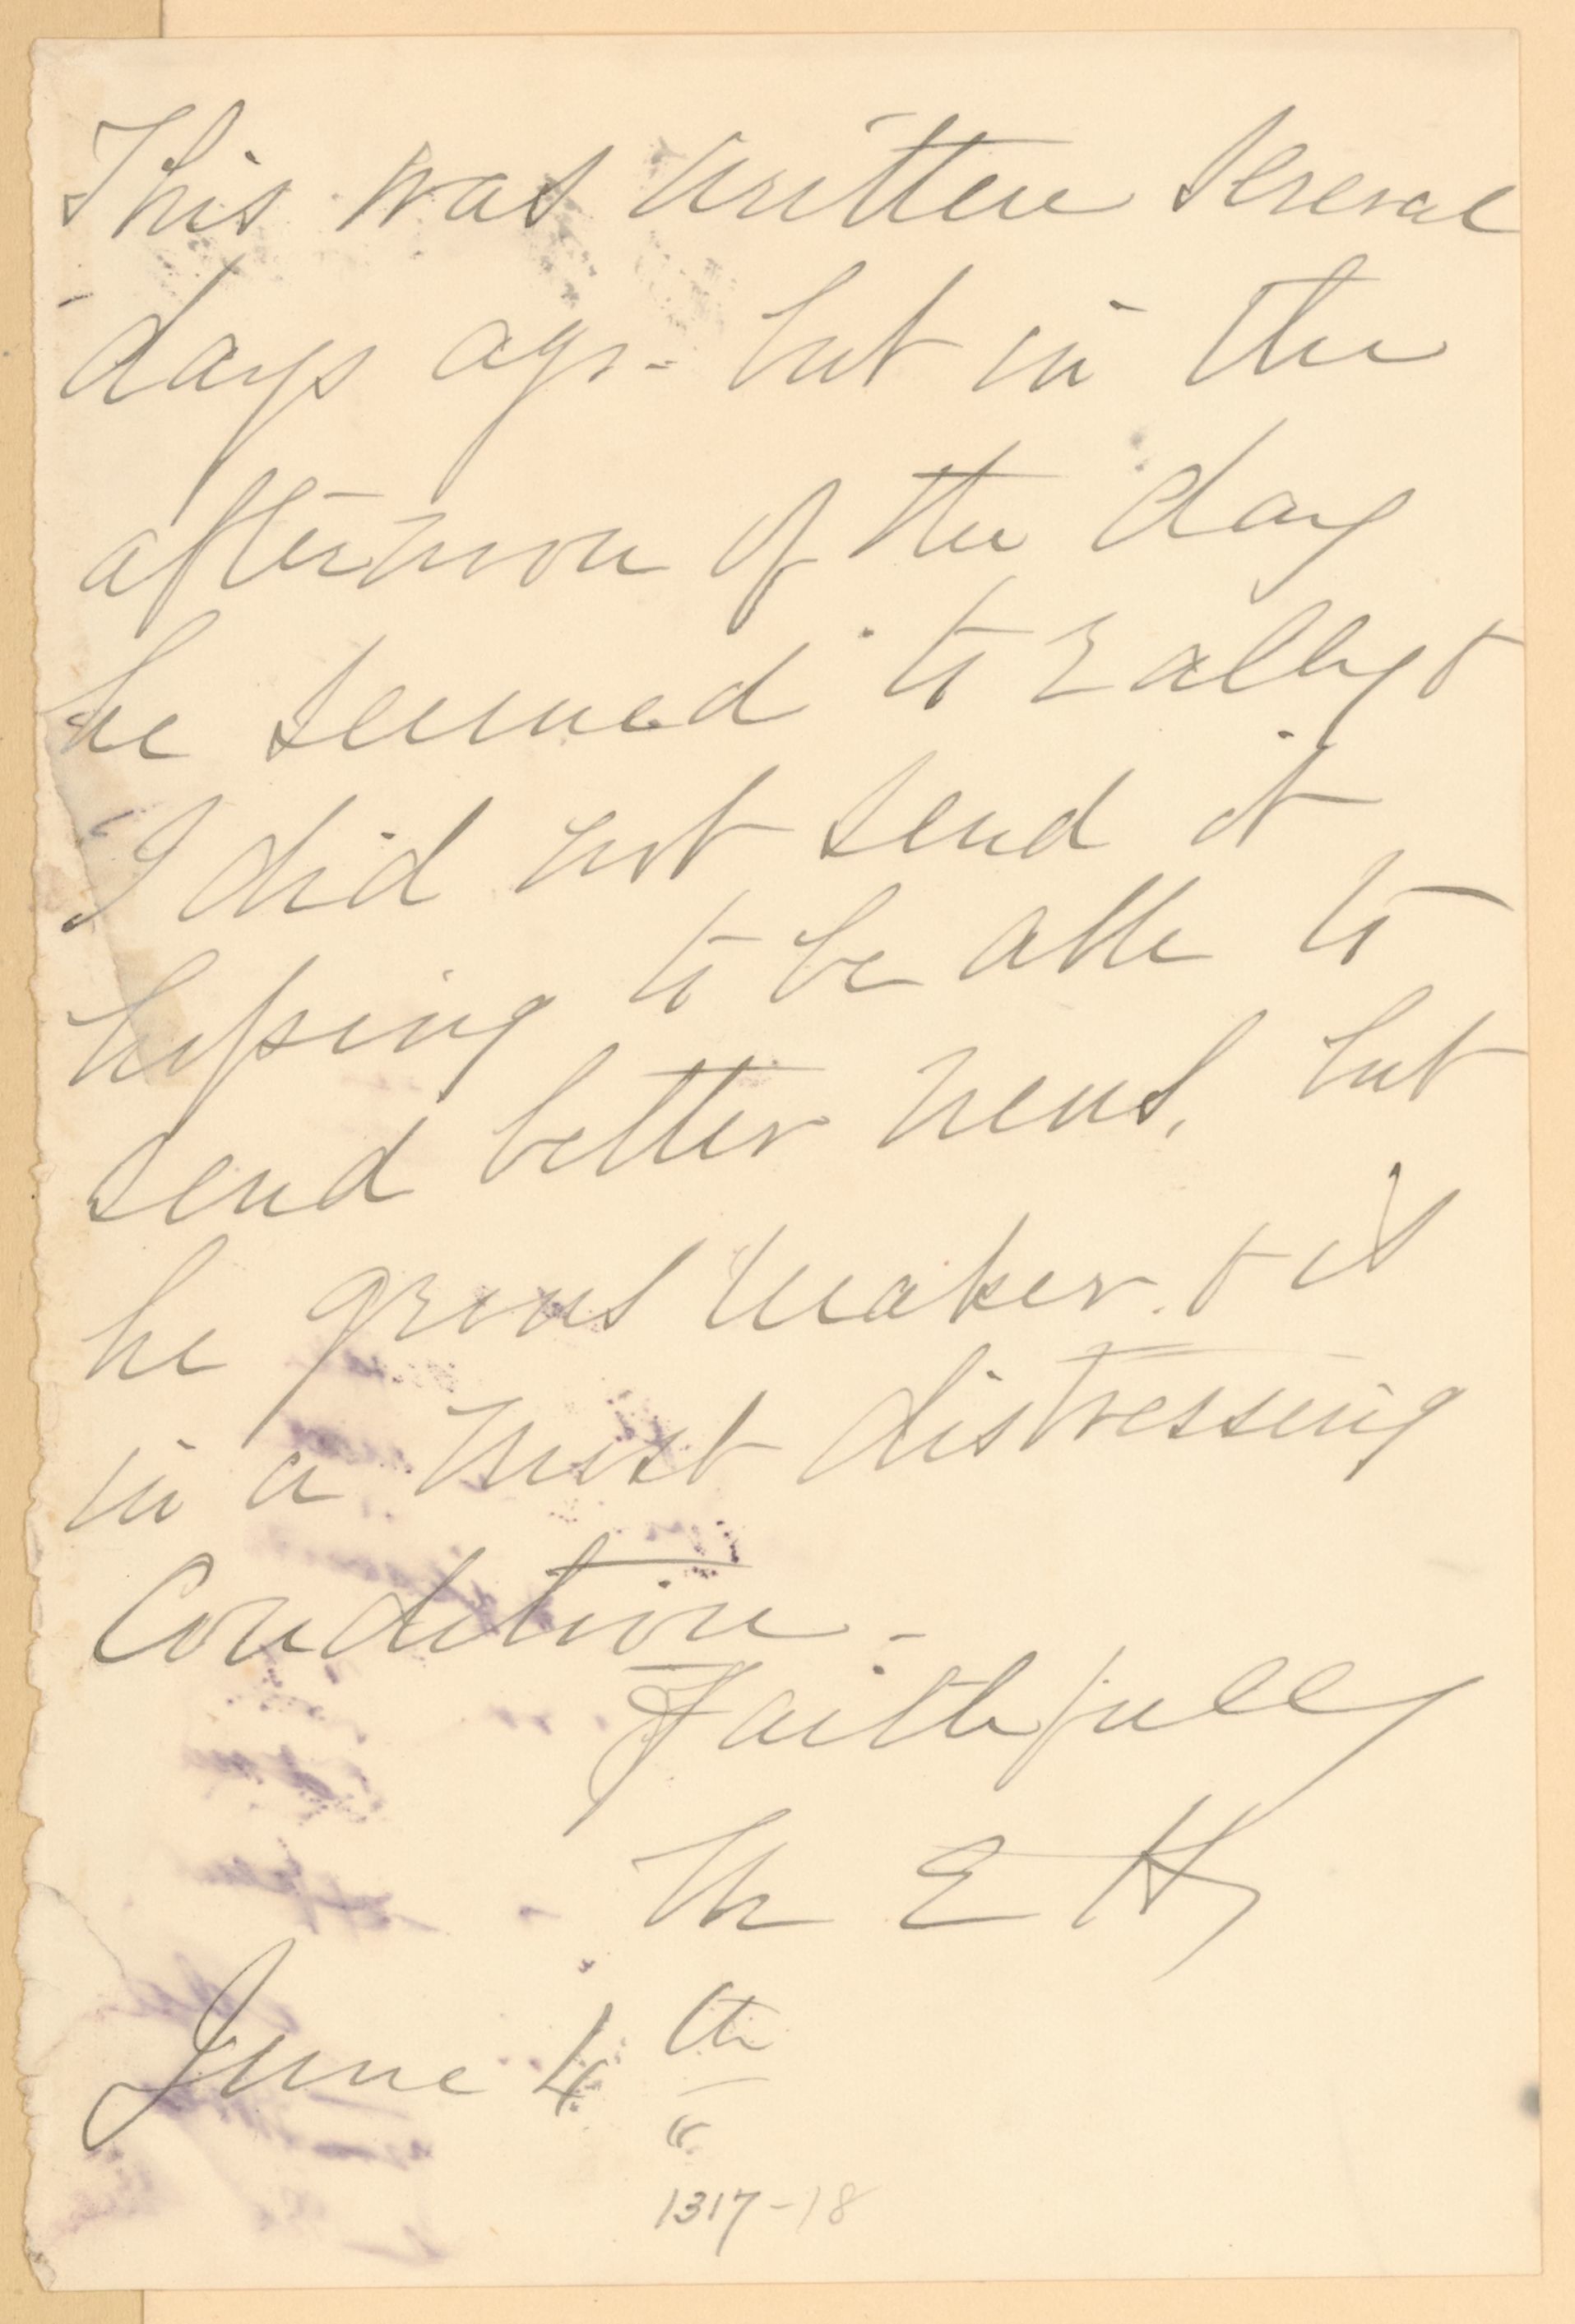 This was written several
days ago - but in the
afternoon of the day
he seemed to rally &
I did not send it
hoping to be able to
send better news, but
he grows weaker. & is
in a most distressing
Condition -
Faithfully
M E H
June 4th
1317-18